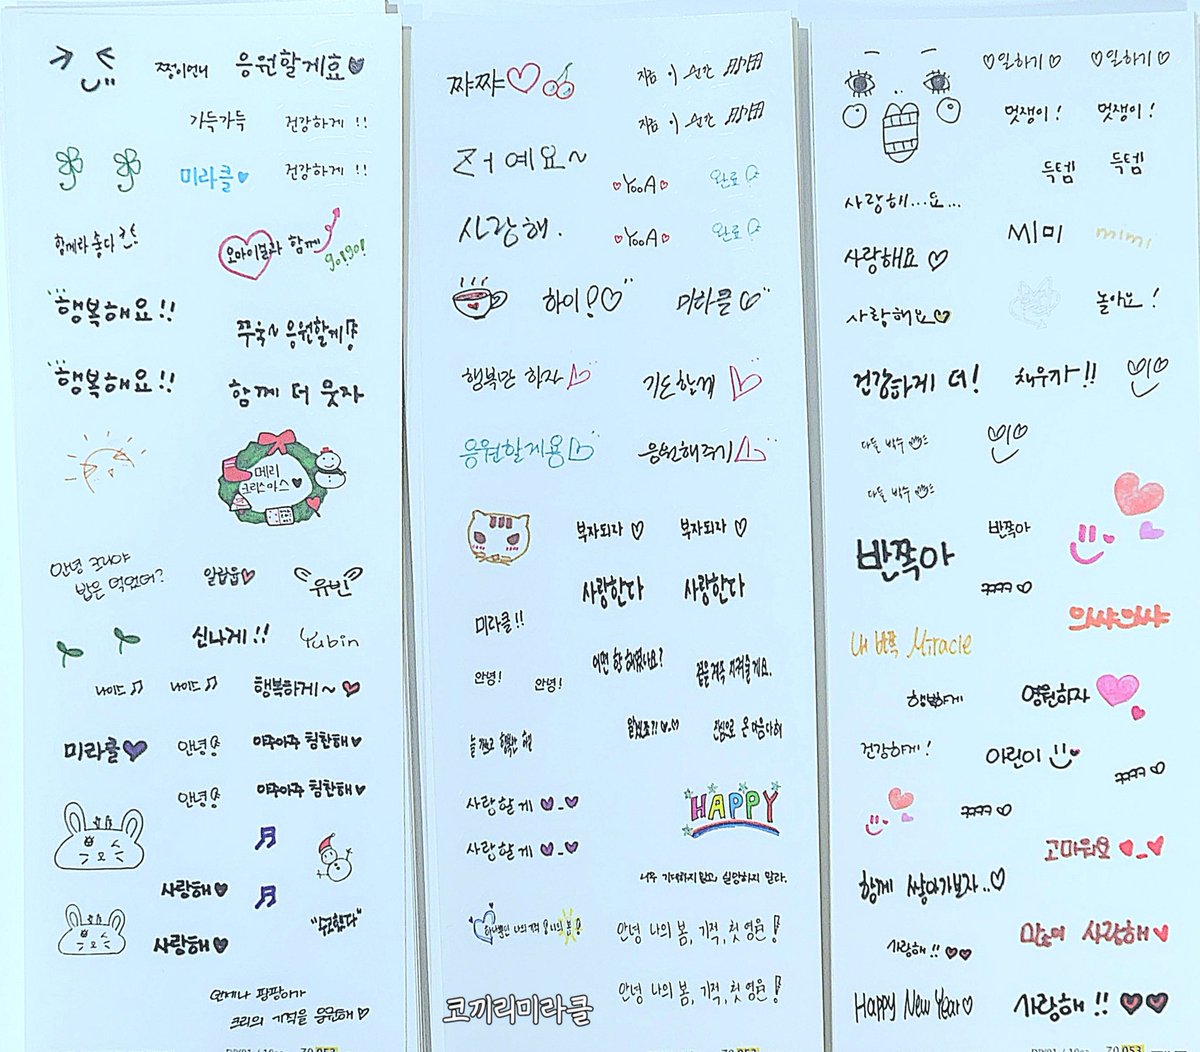 쩡이언니
응원할게효♥
가득가득
건강하게 !!
미라클♥
건강하게 !!
함께라 좋다
오마이걸과 함께
go!go!
행복해요!!
쭈욱~ 응원할게
행복해요!!
함께 더 웃자
메리
크리스마스♥
안녕 크리야
밥은 먹었어?
유빈
신나게!!
Yubin
행복하게~♥
미라클♥
안녕
아주아주 칭찬해♥
안녕
아주아주 칭찬해♥
사랑해♥
"수고했다"
사랑해♥
언제나 팡팡이가
크리의 기적을 응원해♡
쨔쨔♡
지금 이 순간
지금 이 순간
예요~
♡YooA♡
완료
사랑해.
♡YooA♡
완료
하이!♡
미라클♡
행복만 하자
기도할게
응원할게용
응원해주기
부자되자♡
부자되자♡
사랑한다
사랑한다
미라클!!
어떤 향 하셨나요?
곁을 계속 지켜줄게요.
안녕!
안녕!
진심으로 온 마음 다해
사랑할게 ♥_♥
HAPPY
사랑할게 ♥_♥
너무 기대하지말고, 실망하지 말라.
안녕 나의 봄, 기적, 첫 영원!
안녕 나의 봄, 기적, 첫 영원!
코끼리미라클
♡일하기♡
♡일하기♡
멋쟁이!
멋쟁이!
득템
득템
사랑해...요...
MIMI
mimi
사랑해요♡
사랑해요♡
놀아요!
건강하게 더!
채우자-!!
다들 박수
다들 박수
반쪽아
반쪽아
ㅋㅋㅋㅋ♡
으샤으샤
내 반쪽 Miracle
행복하게
영원하자
건강하게!
아린이
ㅋㅋㅋㅋ♡
ㅋㅋㅋㅋ♡
고마워요 ♥_♥
함께 쌓아가보자..♡
사랑해!!♥♥
사랑해♥
Happy New Year♡
사랑해!!♥♥